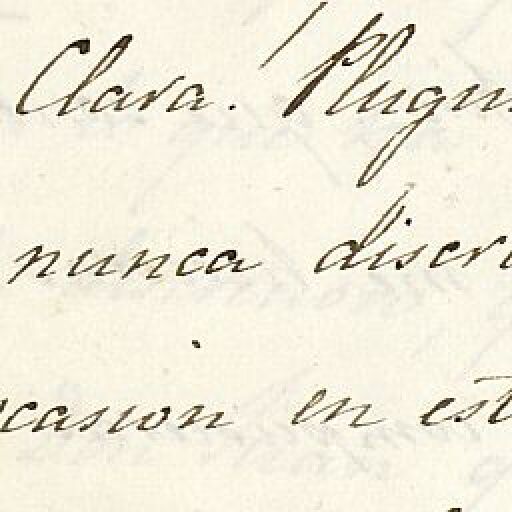 Clara. Plugu
nunca discr
ocasion en est